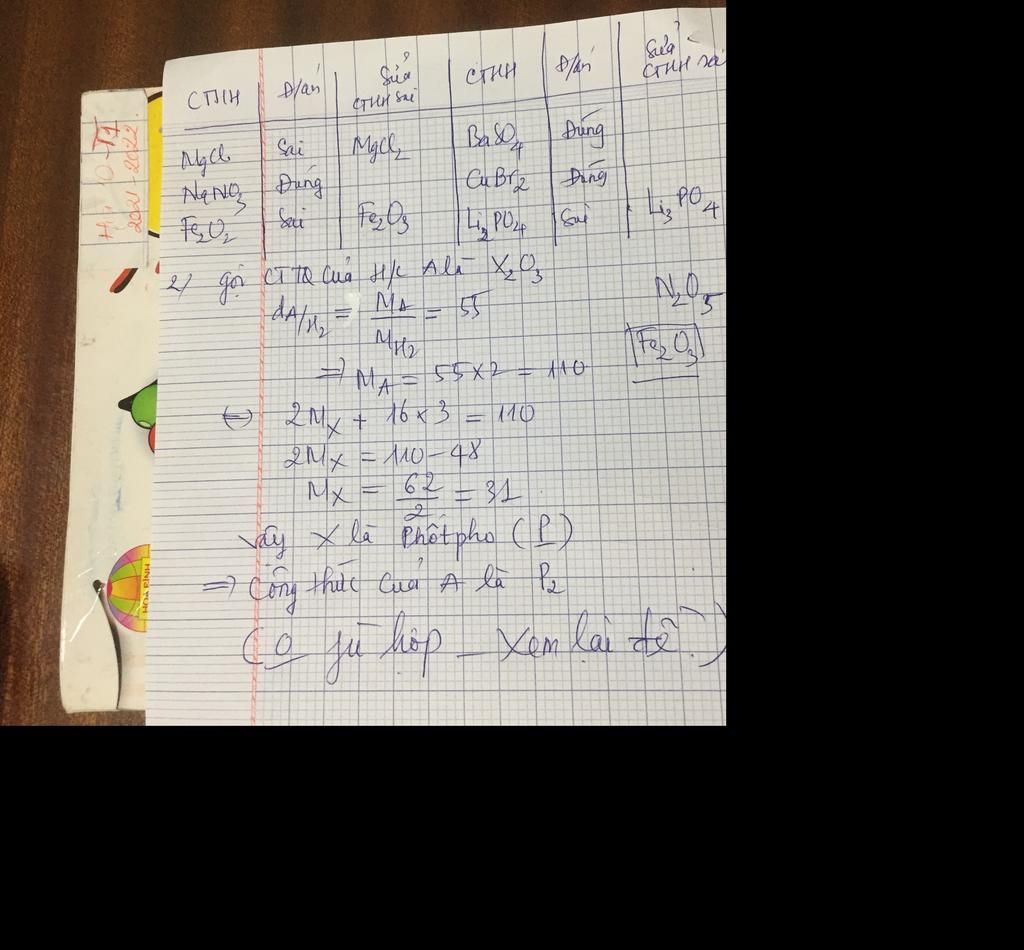 CTHH Đ/án Sửa CTHH sai CTHH Đ/án Sửa CTHH sai
MgCl Sai MgCl2 BaSO4 Đúng
NaNO3 Đúng CuBr2 Đúng
Fe2O2 Sai Fe2O3 Li2PO4 Sai Li3PO4
2) gọi CTTQ của H/c A là X2O3
dA/H2 = MA / MH2 = 55
N2O5
Fe2O3
=> MA = 55 x 2 = 110
<=> 2MX + 16 x 3 = 110
2MX = 110 - 48
MX = 62 / 2 = 31
Vậy X là Phôtpho (P)
=> Công thức của A là P2
hợp - Xem lại đề
2021-2022
HOÀ BÌNH